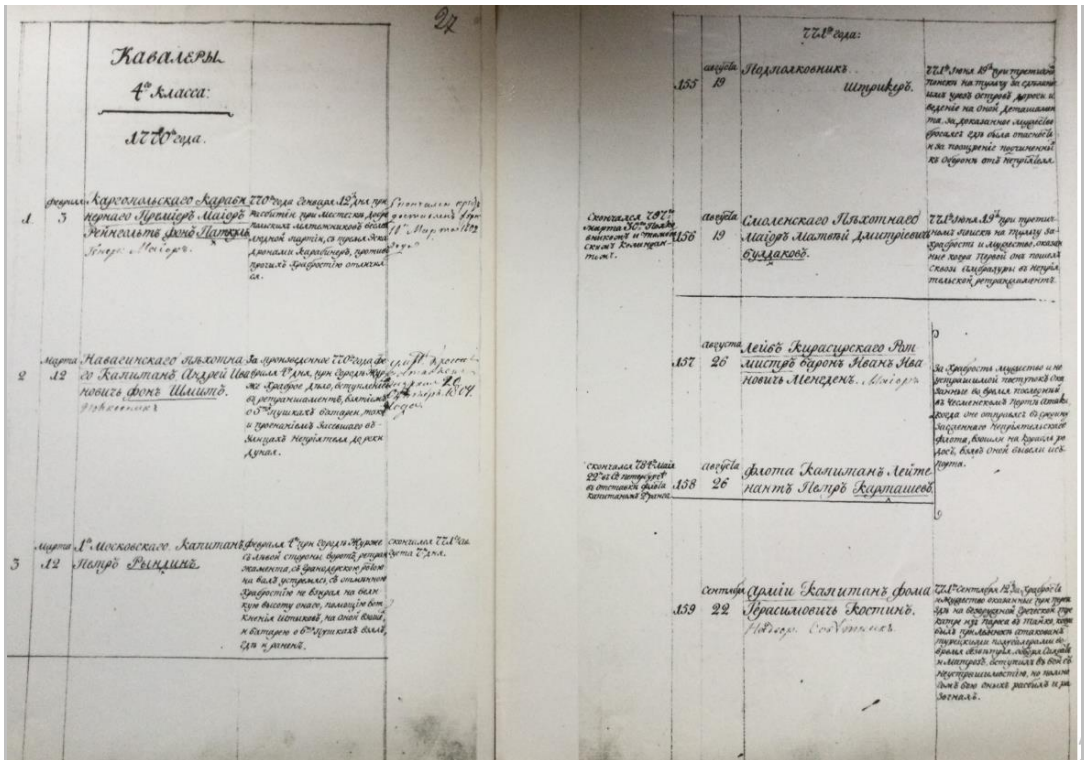 27
Кавалеры
4го класса:
1770го года.
1
февраля
3
Каргопольскаго Караби
нернаго Премiеръ Маiоръ
Рейнгольтъ фонъ Паткуль
Генер. Маiоръ.
770го года Генваря 12го дня при
разбитiи при Местечкѣ
польскихъ мятежниковъ
партiи, съ тремя Эска
дронами Карабинеръ, против
прочихъ храбростiю отличил
ся.
Скончался
Марта 1802
года
2
марта
12
Навагинскаго пѣхотна
го Капитанъ Андрей Ива
новичъ фонъ Шмитъ.
За произведенное 770го года фе
враля 4го дня, при городѣ Жур
жѣ храброе дѣло, вступленiе
въ ретраншаментъ, взятiемъ
о 5ти пушкахъ батареи, також
и прогнанiемъ засевшаго въ
улицахъ непрiятеля до реки
Дуная.
1807.
года
3
марта
12
1го Московскаго Капитанъ
Петръ Рындинъ.
февраля 4го при городѣ Журже
съ левой стороны воротъ, ретран
жамента, съ гранодерскою ротою
на валъ устремясь, съ отменною
храбростiю не взирая на вели
кую высоту онаго, помощiю вот
кненiя штыковъ, на оной взошелъ
и батарею о 6ти пушкахъ взялъ,
гдѣ и раненъ.
скончался 771го
дня.
771го года:
155
августа
19
Подполковникъ
Штрикеръ.
771го Iюня 19го при третичном
поиски на тулчу за сделанiе
имъ чрезъ островъ дороги и
веденiе на оной деташамен
та, за доказанное мужество
бросаясь гдѣ была опасность
и за поощренiе подчиненных
къ обороне отъ непрiятеля
Скончался 787го
марта 30го Полко
вникомъ и
скимъ Комендан
томъ.
156
августа
19
Смоленскаго Пѣхотнаго
Маiоръ Матвѣй Дмитрiевичъ
Булдаковъ.
771го Iюня 19го при третич
номъ поиски на тулчу за
храбрость и мужество, оказан
ные когда первой онъ пошелъ
сквозь амбразуры въ непрiя
тельской ретраншаментъ.
157
августа
26
Лейбъ Кирасирскаго Рот
мистръ баронъ Иванъ Ива
новичъ Менгденъ. Маiоръ
За храбрость мужество и не
устрашимой поступокъ ока
занные во время последней
въ Чесменскомъ порте атаки,
когда оне отправясь въ средину
зазженнаго непрiятельскаго
флота, взошли на корабль ро
досъ, взявъ оной вывели изъ
порта.
скончался 784го Маiя
22го въ С: Петербурге
въ отставки флота
капитаномъ 2го ранга
158
августа
26
флота Капитанъ Лейте
нантъ Петръ Карташевъ.
159
сентября
22
Армiи Капитанъ фома
Герасимовичъ Костинъ.
Надвор. Советникъ.
771го Сентября 12го За храбрость
и мужество оказанные при перее
здѣ на безоружной греческой тре
катре изъ Пароса въ Танко, когда
былъ при
турецкими полугалерами во
время
и Матрозъ, вступилъ въ бой съ
неустрашимостiю, но
боемъ оныхъ разбилъ и ра
зогналъ.